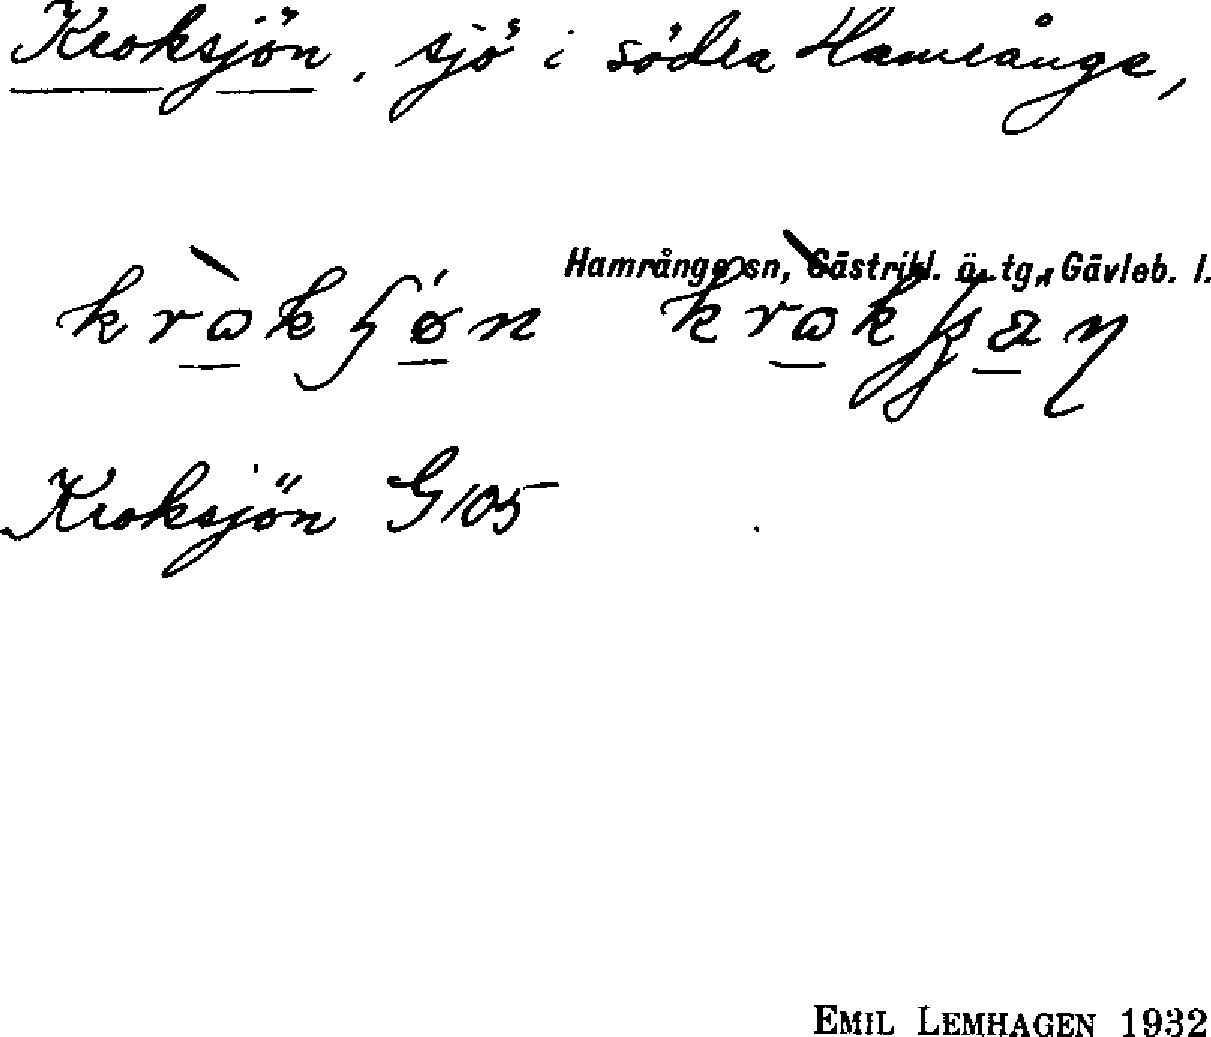 Kroksjön, sjö i södra Hamrånge,
Hamrånge sn, Gästrikl. ö. tg., Gävleb. l.
Kroksjön G105
EMIL LEMHAGEN 1932